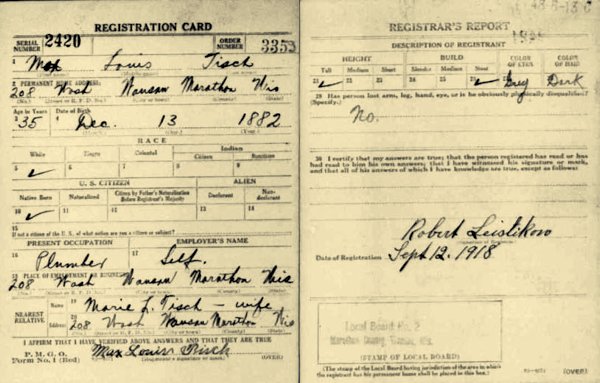 REGISTRATION CARD
SERIAL NUMBER 2420 ORDER NUMBER 3353
1 Max Louis Tisch
2 PERMANENT HOME ADDRESS:
208 Wash Wausau Marathon Wis
(No.) (Street or R. F. D. No.) (City or town) (County) (State)
Age in Years Date of Birth
3 35 4 Dec. 13 1882
(Month) (Day) (Year)
RACE
White Negro Oriental Indian
Citizen Noncitizen
5 ✓ 6 7 8 9
U. S. CITIZEN ALIEN
Native Born Naturalized Citizen by Father's Naturalization Before Registrant's Majority Declarant Non-declarant
10 ✓ 11 12 13 14
15
If not a citizen of the U. S., of what nation are you a citizen or subject?
PRESENT OCCUPATION EMPLOYER'S NAME
16 Plumber 17 Self.
18 PLACE OF EMPLOYMENT OR BUSINESS:
208 Wash Wausau Marathon Wis
(No.) (Street or R. F. D. No.) (City or town) (County) (State)
NEAREST RELATIVE
Name 19 Marie L. Tisch - wife
Address 20 208 Wash Wausau Marathon Wis
(No.) (Street or R. F. D. No.) (City or town) (County) (State)
I AFFIRM THAT I HAVE VERIFIED ABOVE ANSWERS AND THAT THEY ARE TRUE
P. M. G. O.
Form No. 1 (Red) Max Louis Tisch
(Registrant's signature or mark) (OVER)
REGISTRAR'S REPORT
DESCRIPTION OF REGISTRANT
HEIGHT BUILD COLOR OF EYES COLOR OF HAIR
Tall Medium Short Slender Medium Stout
21 ✓ 22 23 24 25 26 ✓ 27 Grey 28 Dark
29 Has person lost arm, leg, hand, eye, or is he obviously physically disqualified?
(Specify.)
No.
30 I certify that my answers are true; that the person registered has read or has
had read to him his own answers; that I have witnessed his signature or mark,
and that all of his answers of which I have knowledge are true, except as follows:
Robert Leistikow
(Signature of Registrar)
Date of Registration Sept 12, 1918
Local Board No. 2
Marathon County, Wausau, Wis.
(STAMP OF LOCAL BOARD)
(The stamp of the Local Board having jurisdiction of the area in which
the registrant has his permanent home shall be placed in this box.)
(OVER)